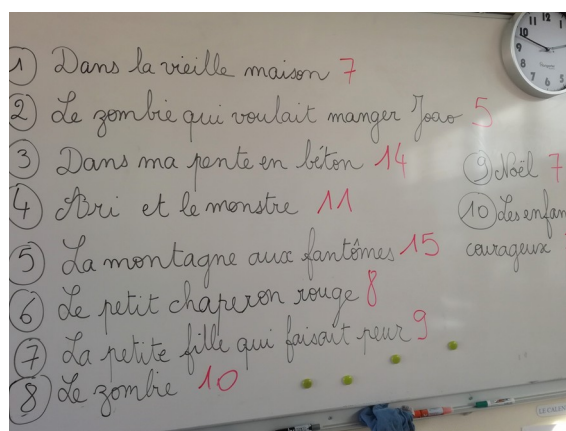 1 Dans la vieille maison 7
2 Le zombie qui voulait manger Joao 5
3 Dans ma pente en béton 14
4 Abri et le monstre 11
5 La montagne aux fantômes 15
6 Le petit chaperon rouge 8
7 La petite fille qui faisait peur 9
8 Le zombie 10
9 Noël 7
10 Les enfan
courageux
11 12 1
10 2
9 3
8 4
7 6 5